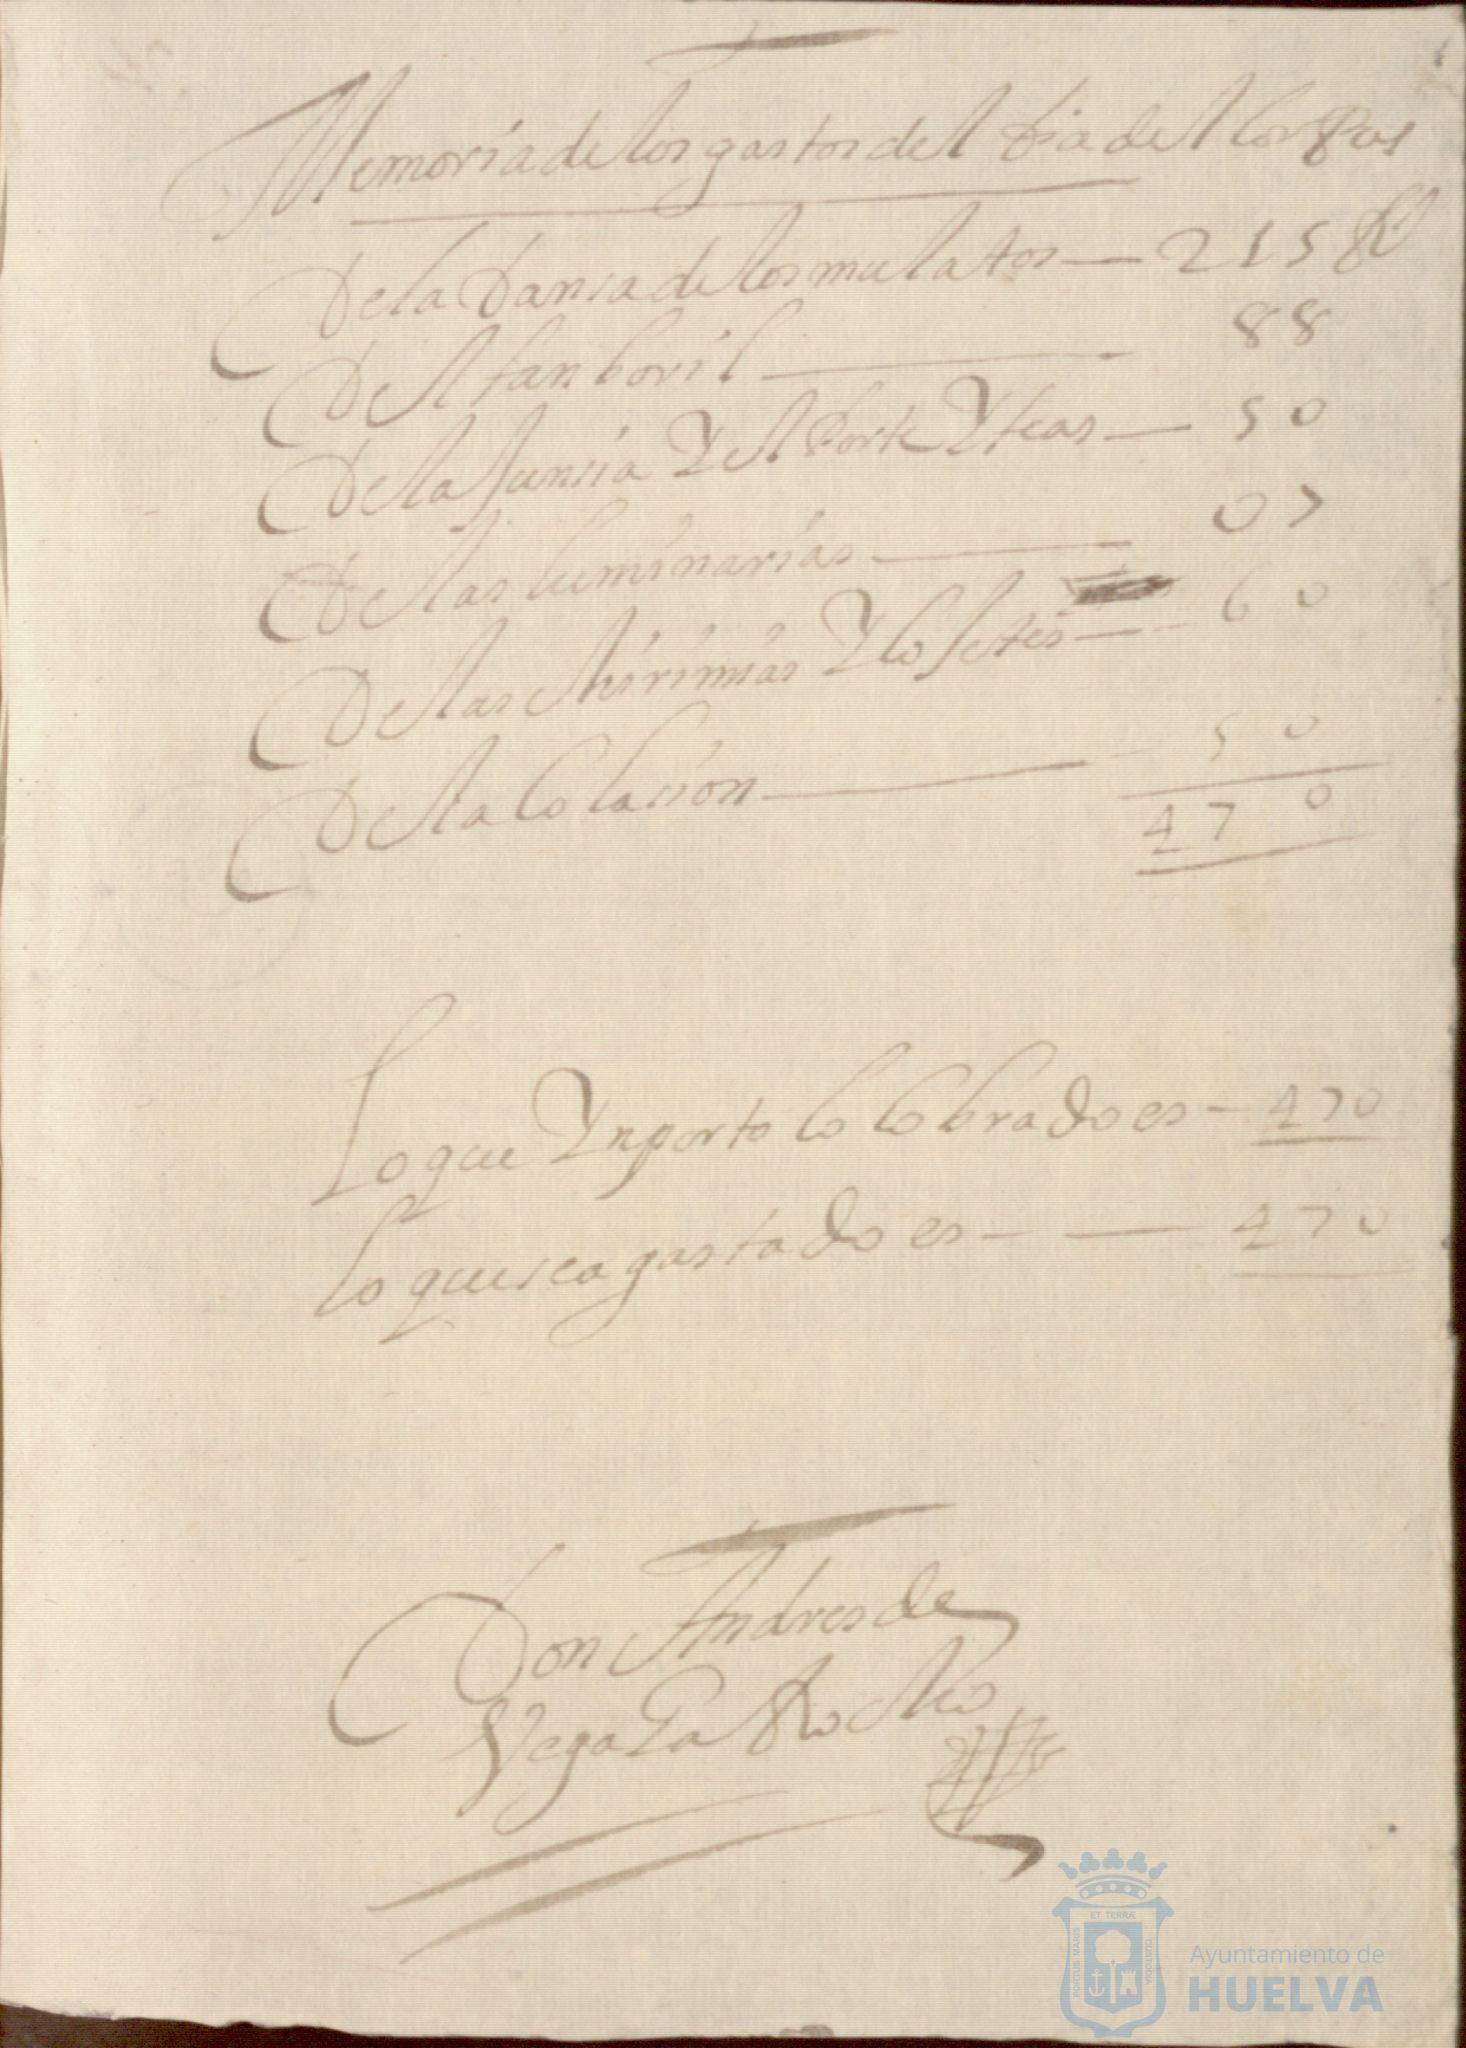 Memoria de los gastos del dia del Corpus
De la Dansa de los mulatos — 215 R
Del tanboril — 88
De la Juncia Y el Porte Y teas — 50
De las luminarias — 07
De las chirimias Y cosetes — 60
De la Colacion — 50
470
Lo que Ynporto lo Cobrado es — 470
lo que sea gastado es — 470
Don Andres de
Vega
ET TERRÆ
PORTUS MARIS
CUSTODIA
Ayuntamiento de
HUELVA